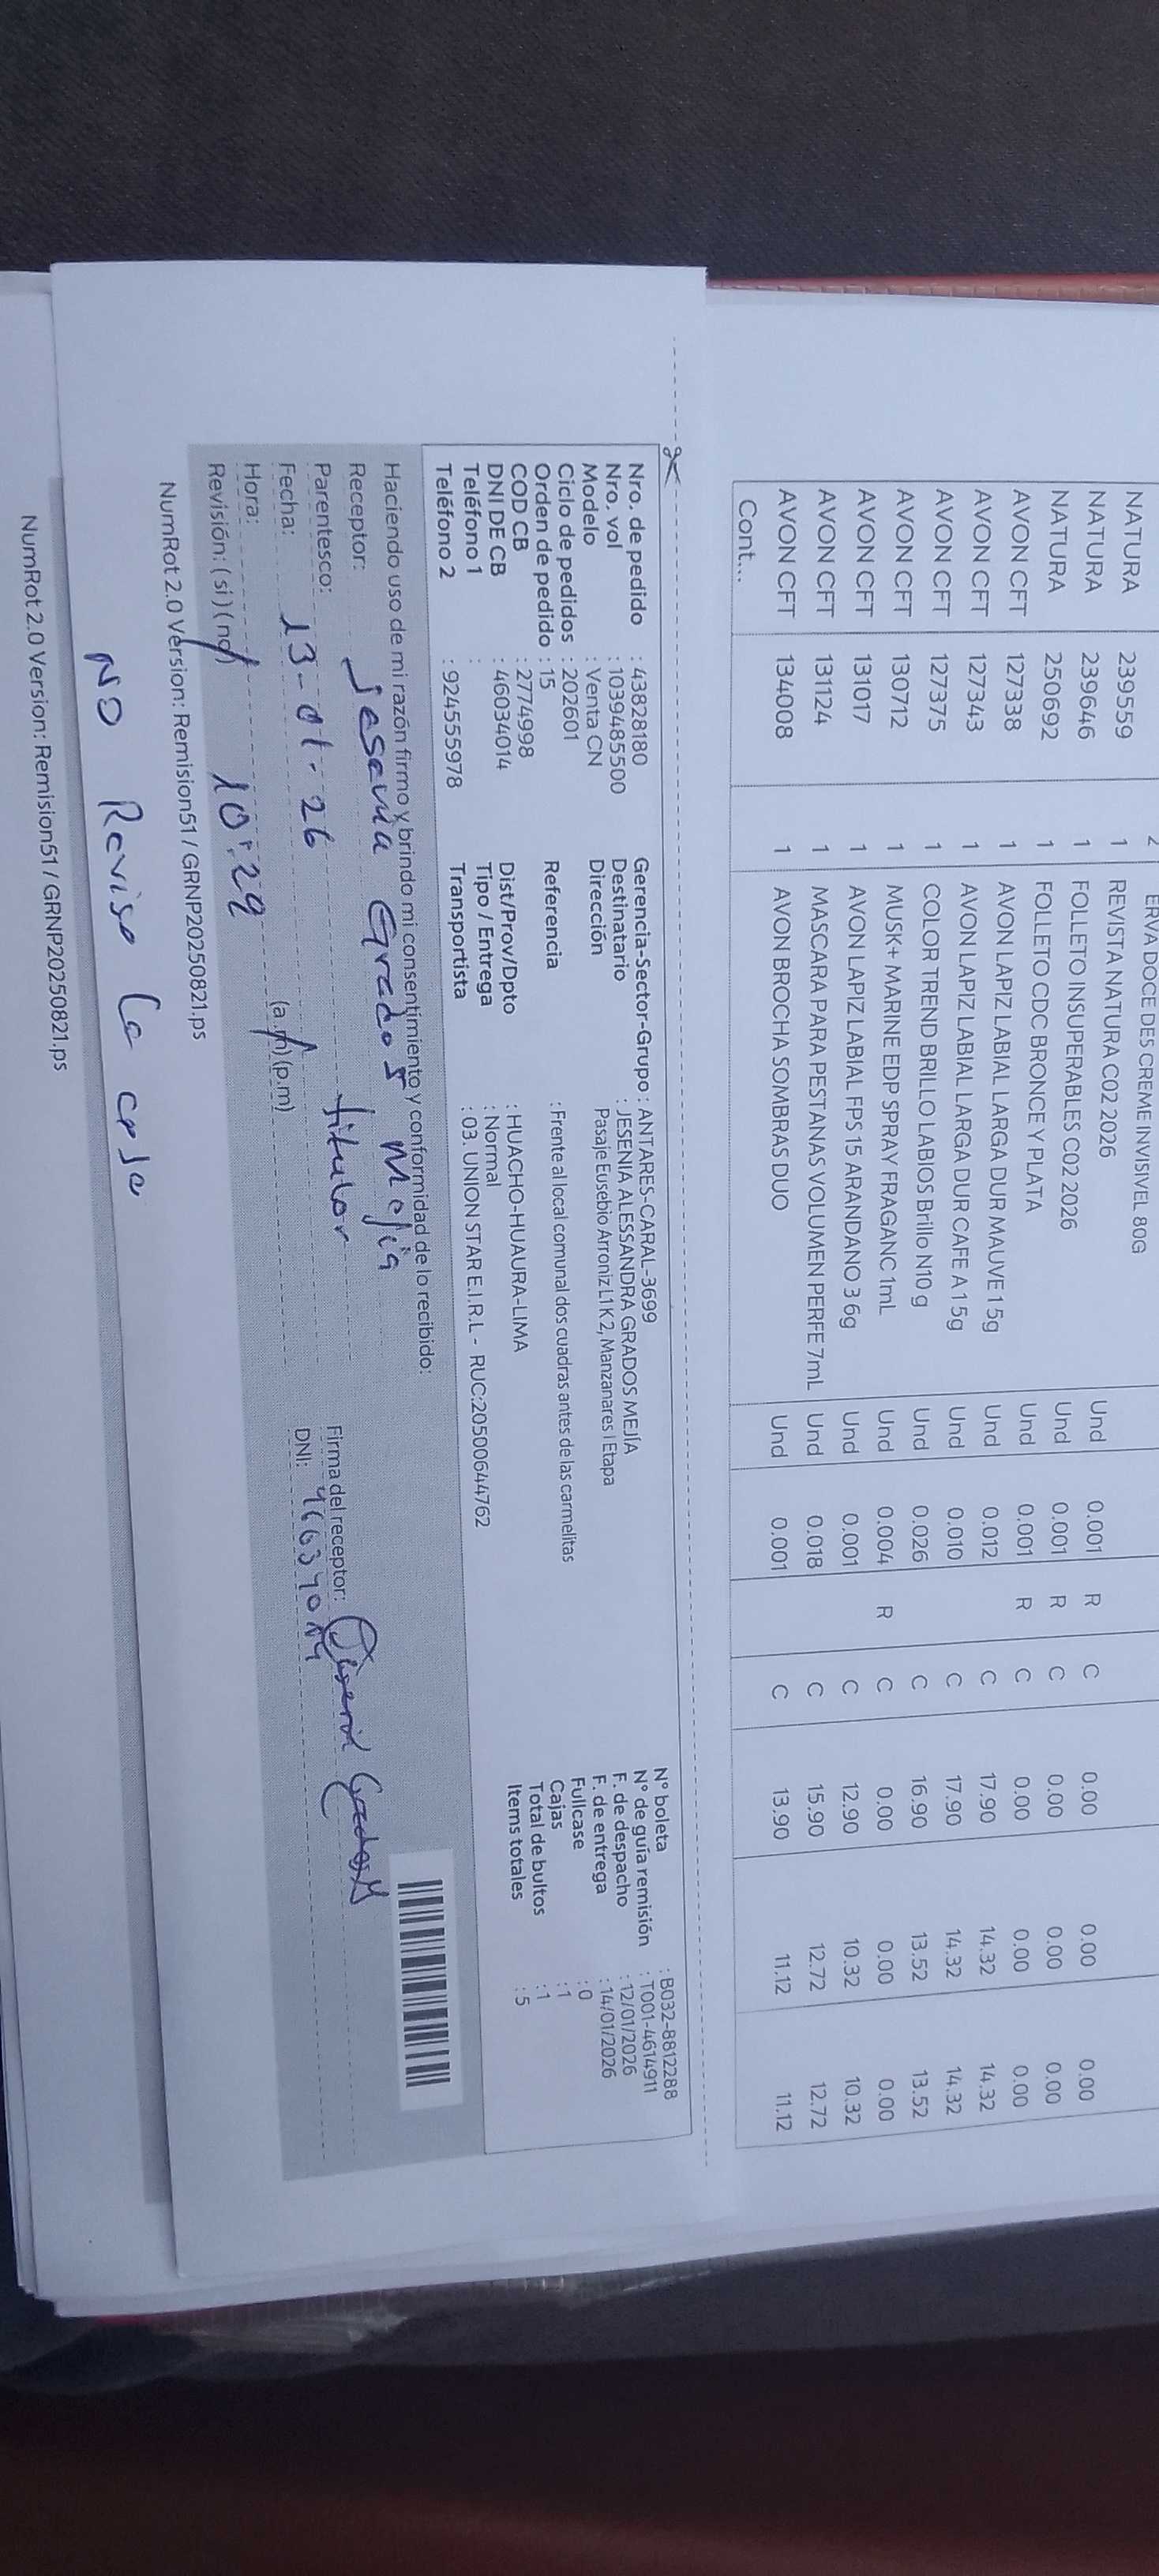 ERVA DOCE DES CREME INVISIVEL 80G
NATURA 239559 1 REVISTA NATURA C02 2026 Und 0.001 R C 0.00 0.00 0.00
NATURA 239646 1 FOLLETO INSUPERABLES C02 2026 Und 0.001 R C 0.00 0.00 0.00
NATURA 250692 1 FOLLETO CDC BRONCE Y PLATA Und 0.001 R C 0.00 0.00 0.00
AVON CFT 127338 1 AVON LAPIZ LABIAL LARGA DUR MAUVE 1 5g Und 0.012 C 17.90 14.32 14.32
AVON CFT 127343 1 AVON LAPIZ LABIAL LARGA DUR CAFE A 1 5g Und 0.010 C 17.90 14.32 14.32
AVON CFT 127375 1 COLOR TREND BRILLO LABIOS Brillo N10 g Und 0.026 C 16.90 13.52 13.52
AVON CFT 130712 1 MUSK+ MARINE EDP SPRAY FRAGANC 1mL Und 0.004 R C 0.00 0.00 0.00
AVON CFT 131017 1 AVON LAPIZ LABIAL FPS 15 ARANDANO 3 6g Und 0.001 C 12.90 10.32 10.32
AVON CFT 131124 1 MASCARA PARA PESTANAS VOLUMEN PERFE 7mL Und 0.018 C 15.90 12.72 12.72
AVON CFT 134008 1 AVON BROCHA SOMBRAS DUO Und 0.001 C 13.90 11.12 11.12
Cont...
Nro. de pedido : 43828180 Gerencia-Sector-Grupo : ANTARES-CARAL-3699 N° boleta : B032-8812288
Nro. vol : 1039485500 Destinatario : JESENIA ALESSANDRA GRADOS MEJÍA N° de guía remisión : T001-4614911
Modelo : Venta CN Dirección Pasaje Eusebio Arroniz L1 K2, Manzanares I Etapa F. de despacho : 12/01/2026
Ciclo de pedidos : 202601 F. de entrega : 14/01/2026
Orden de pedido : 15 Referencia : Frente al local comunal dos cuadras antes de las carmelitas Fullcase : 0
COD CB : 2774998 Cajas : 1
DNI DE CB : 46034014 Dist/Prov/Dpto : HUACHO-HUAURA-LIMA Total de bultos : 1
Teléfono 1 : Tipo / Entrega : Normal Items totales : 5
Teléfono 2 : 924555978 Transportista : 03. UNION STAR E.I.R.L - RUC:20500644762
Haciendo uso de mi razón firmo y brindo mi consentimiento y conformidad de lo recibido:
Receptor: Jesenia Grados Mejia
Parentesco: titular Firma del receptor: Jesenia Grados M
Fecha: 13-01-26 DNI: 46034014
Hora: 10:29 (a.m) (p.m)
Revisión: ( si ) ( no )
NumRot 2.0 Version: Remision51 / GRNP20250821.ps
NO Reviso la caja
NumRot 2.0 Version: Remision51 / GRNP20250821.ps